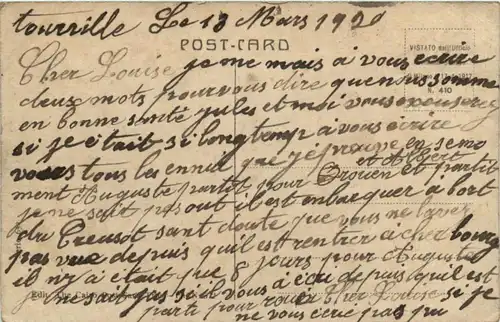 tourville Le 13 Mars 1920
POST-CARD
VISTATO
N. 410
Cher Louise je me mais a vous écrire
deux mots pour vous dire que nous somme
en bonne santé jules et moi vous
si je était si longtemp a vous écrire
tous les ennui que j'éprouve en se mo
et Albert
ment Auguste partit pour Rouen et partit
je ne sait pas out il est embarquer a bort
du Creusot sant doute que vous ne lavez
pas vue depuis quil est rentrer a cherbourg
il n'y a était que 8 jours pour Auguste
je ne sait pas si il vous a écri depuis quil est
parti pour rouen Cher Louise si je
ne vous écrie pas pu